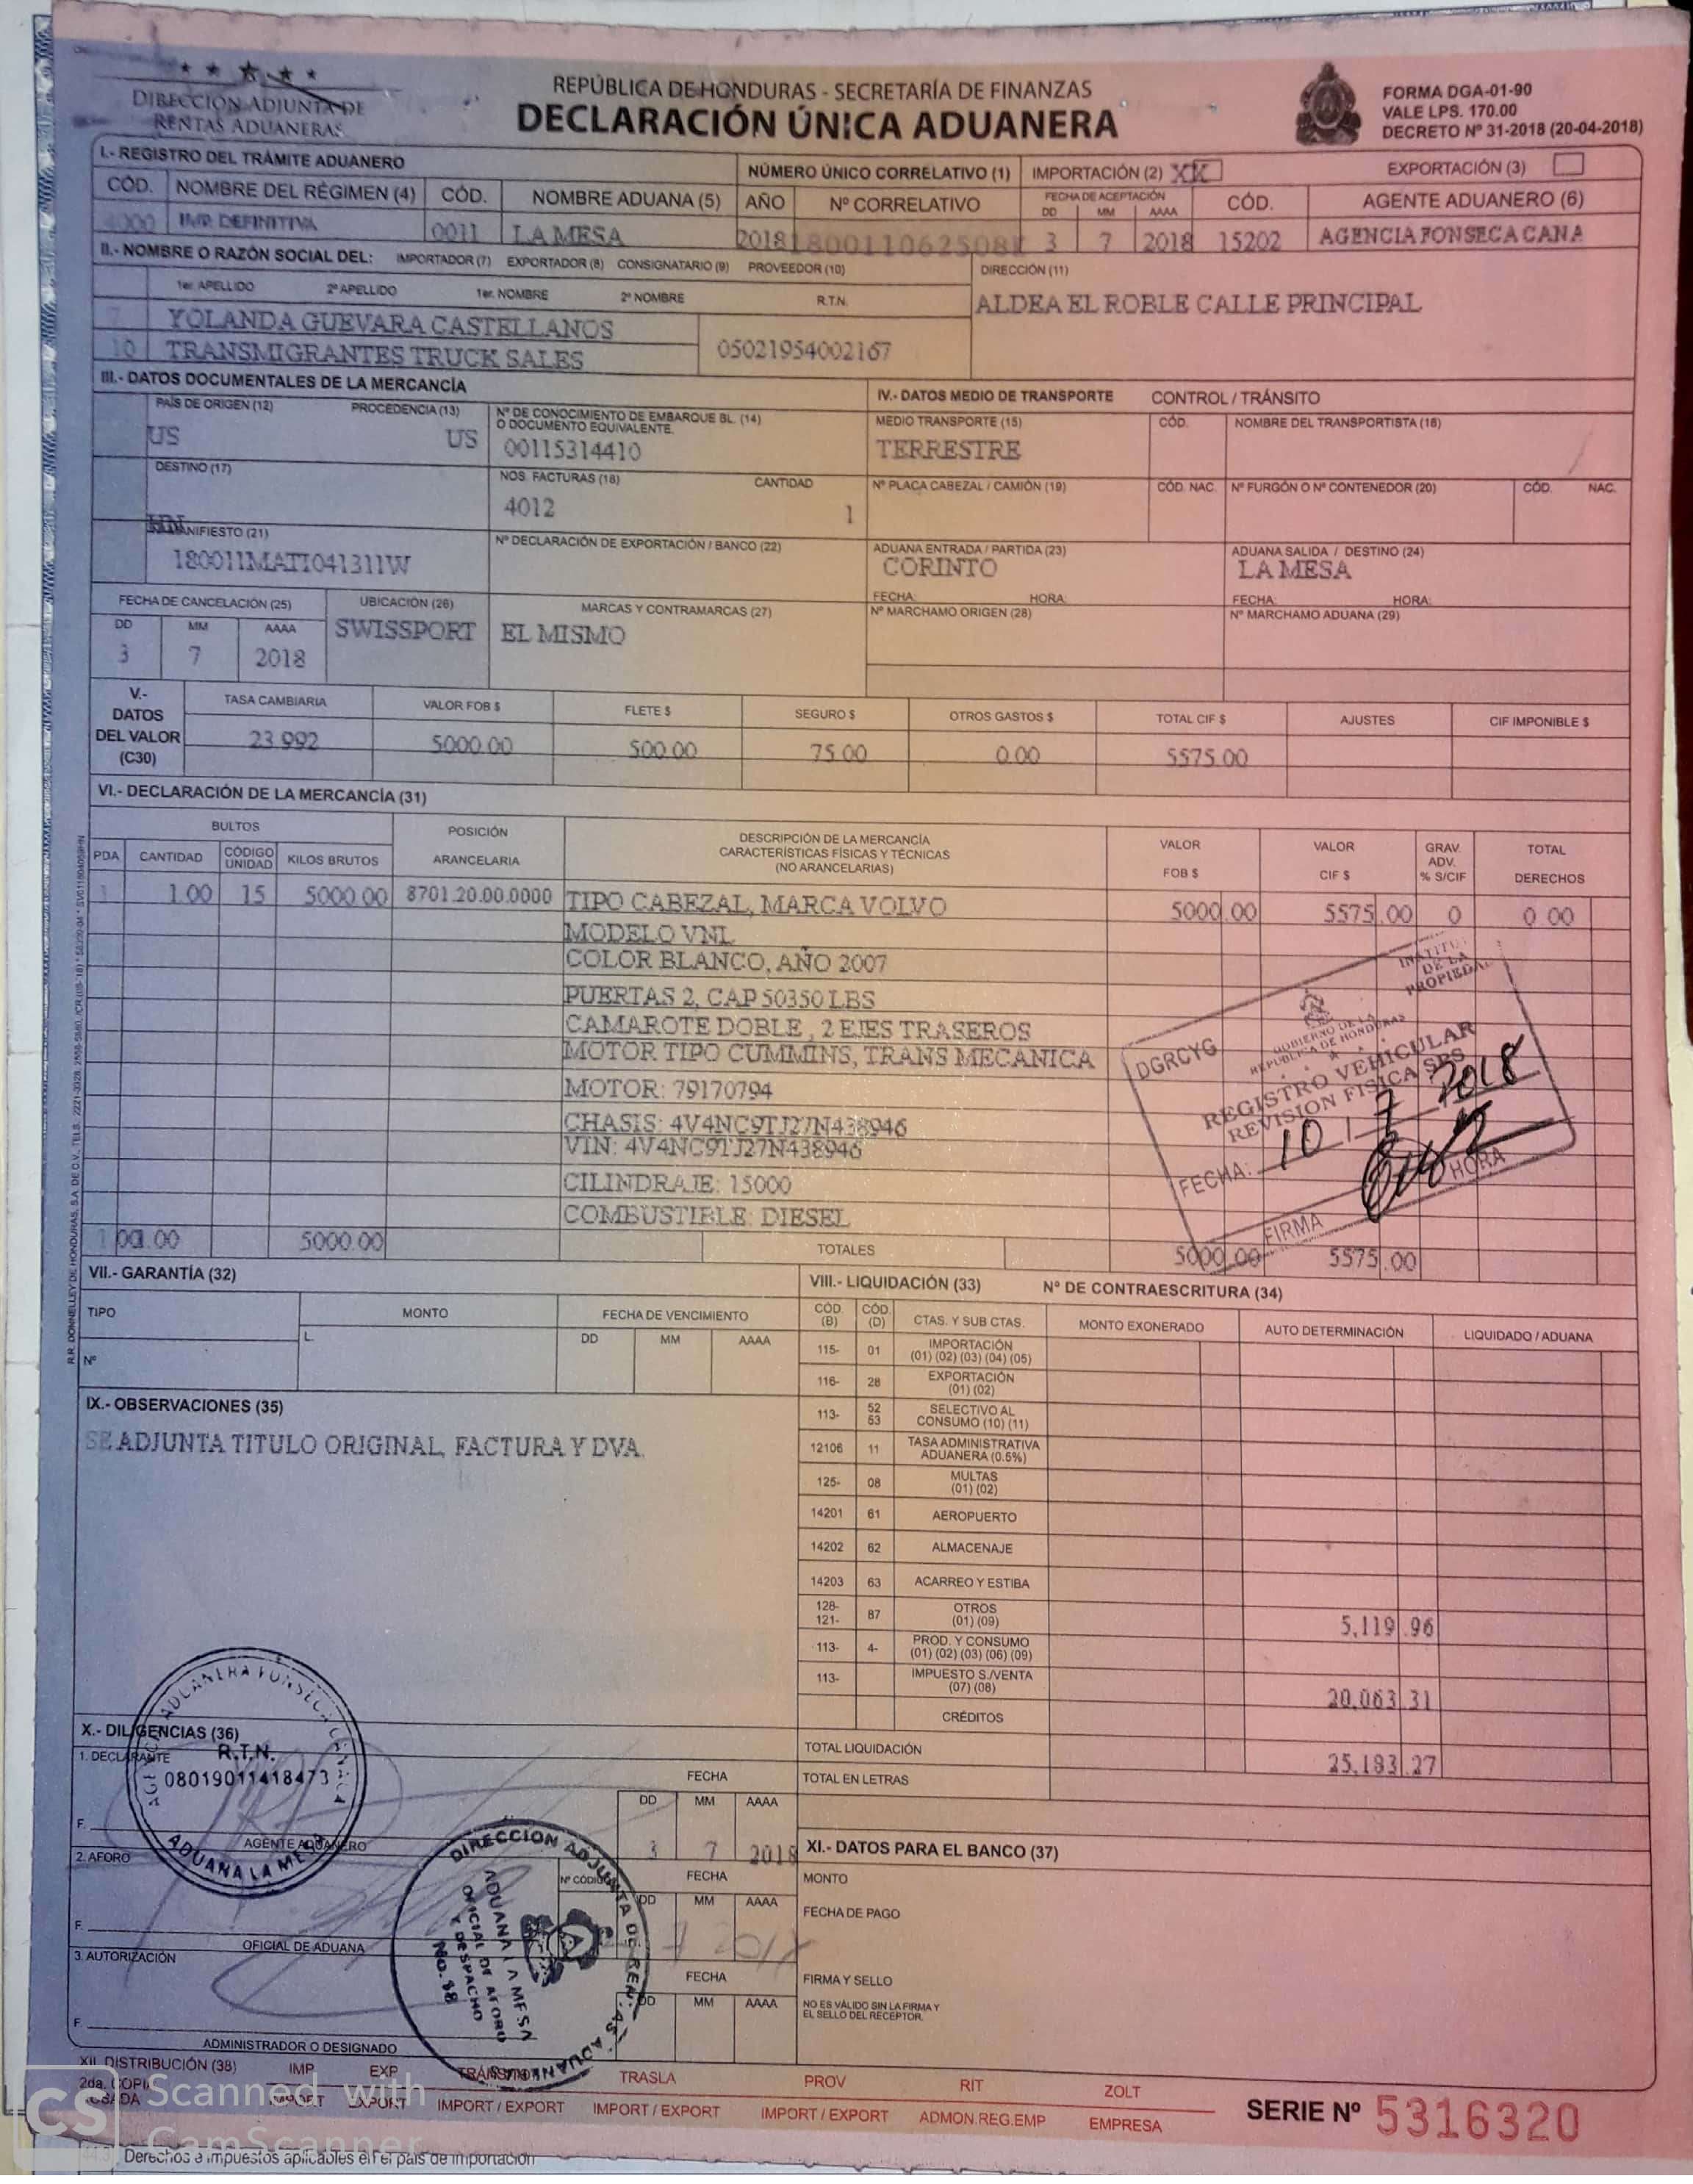 DIRECCIÓN ADJUNTA DE
RENTAS ADUANERAS
REPÚBLICA DE HONDURAS - SECRETARÍA DE FINANZAS
DECLARACIÓN ÚNICA ADUANERA
FORMA DGA-01-90
VALE LPS. 170.00
DECRETO Nº 31-2018 (20-04-2018)
I.- REGISTRO DEL TRÁMITE ADUANERO
NÚMERO ÚNICO CORRELATIVO (1) IMPORTACIÓN (2) XX EXPORTACIÓN (3)
CÓD. NOMBRE DEL RÉGIMEN (4) CÓD. NOMBRE ADUANA (5) AÑO Nº CORRELATIVO FECHA DE ACEPTACIÓN DD MM AAAA CÓD. AGENTE ADUANERO (6)
4000 IMP. DEFINITIVA 0011 LA MESA 2018 3 7 2018 15202 AGENCIA FONSECA CANA
II.- NOMBRE O RAZÓN SOCIAL DEL: IMPORTADOR (7) EXPORTADOR (8) CONSIGNATARIO (9) PROVEEDOR (10) DIRECCIÓN (11)
1er. APELLIDO 2º APELLIDO 1er. NOMBRE 2º NOMBRE R.T.N.
ALDEA EL ROBLE CALLE PRINCIPAL
7 YOLANDA GUEVARA CASTELLANOS
10 TRANSMIGRANTES TRUCK SALES 05021954002167
III.- DATOS DOCUMENTALES DE LA MERCANCÍA IV.- DATOS MEDIO DE TRANSPORTE CONTROL / TRÁNSITO
PAÍS DE ORIGEN (12) PROCEDENCIA (13) Nº DE CONOCIMIENTO DE EMBARQUE BL. (14) O DOCUMENTO EQUIVALENTE. MEDIO TRANSPORTE (15) CÓD. NOMBRE DEL TRANSPORTISTA (16)
US US 00115314410 TERRESTRE
DESTINO (17) NOS. FACTURAS (18) CANTIDAD Nº PLACA CABEZAL / CAMIÓN (19) CÓD. NAC. Nº FURGÓN O Nº CONTENEDOR (20) CÓD. NAC.
HN 4012 1
MANIFIESTO (21) Nº DECLARACIÓN DE EXPORTACIÓN / BANCO (22) ADUANA ENTRADA / PARTIDA (23) ADUANA SALIDA / DESTINO (24)
180011MATI041311W CORINTO LA MESA
FECHA: HORA: FECHA: HORA:
FECHA DE CANCELACIÓN (25) UBICACIÓN (26) MARCAS Y CONTRAMARCAS (27) Nº MARCHAMO ORIGEN (28) Nº MARCHAMO ADUANA (29)
DD MM AAAA SWISSPORT EL MISMO
3 7 2018
V.- DATOS DEL VALOR (C30)
TASA CAMBIARIA VALOR FOB $ FLETE $ SEGURO $ OTROS GASTOS $ TOTAL CIF $ AJUSTES CIF IMPONIBLE $
23.992 5000.00 500.00 75.00 0.00 5575.00
VI.- DECLARACIÓN DE LA MERCANCÍA (31)
BULTOS POSICIÓN ARANCELARIA DESCRIPCIÓN DE LA MERCANCÍA CARACTERÍSTICAS FÍSICAS Y TÉCNICAS (NO ARANCELARIAS) VALOR FOB $ VALOR CIF $ GRAV. ADV. % S/CIF TOTAL DERECHOS
PDA CANTIDAD CÓDIGO UNIDAD KILOS BRUTOS
1 1.00 15 5000.00 8701.20.00.0000 TIPO CABEZAL, MARCA VOLVO 5000.00 5575.00 0 0.00
MODELO VNL
COLOR BLANCO, AÑO 2007
PUERTAS 2, CAP 50350 LBS
CAMAROTE DOBLE , 2 EJES TRASEROS
MOTOR TIPO CUMMINS, TRANS MECANICA
MOTOR: 79170794
CHASIS: 4V4NC9TJ27N438946
VIN: 4V4NC9TJ27N438946
CILINDRAJE: 15000
COMBUSTIBLE: DIESEL
INSTITUTO DE LA PROPIEDAD
GOBIERNO DE LA REPUBLICA DE HONDURAS
DGRCYG
REGISTRO VEHICULAR
REVISION FISICA SPS
FECHA: 10 / 7 2018
HORA
FIRMA
5000.00 TOTALES 5000.00 5575.00
VII.- GARANTÍA (32) VIII.- LIQUIDACIÓN (33) Nº DE CONTRAESCRITURA (34)
TIPO MONTO FECHA DE VENCIMIENTO CÓD. (B) CÓD. (D) CTAS. Y SUB CTAS. MONTO EXONERADO AUTO DETERMINACIÓN LIQUIDADO / ADUANA
L. DD MM AAAA
Nº
115- 01 IMPORTACIÓN (01) (02) (03) (04) (05)
116- 28 EXPORTACIÓN (01) (02)
IX.- OBSERVACIONES (35)
113- 52 53 SELECTIVO AL CONSUMO (10) (11)
SE ADJUNTA TITULO ORIGINAL, FACTURA Y DVA.
12106 11 TASA ADMINISTRATIVA ADUANERA (0.5%)
125- 08 MULTAS (01) (02)
14201 61 AEROPUERTO
14202 62 ALMACENAJE
14203 63 ACARREO Y ESTIBA
128- 121- 87 OTROS (01) (09) 5,119.96
113- 4- PROD. Y CONSUMO (01) (02) (03) (06) (09)
113- IMPUESTO S./VENTA (07) (08) 20,063.31
CRÉDITOS
TOTAL LIQUIDACIÓN 25,183.27
TOTAL EN LETRAS
X.- DILIGENCIAS (36)
1. DECLARANTE FECHA
R.T.N.
08019011418473
ADUANA LA MESA
DD MM AAAA
F. AGENTE ADUANERO 3 7 2018
XI.- DATOS PARA EL BANCO (37)
2. AFORO Nº CÓDIGO FECHA MONTO
DD MM AAAA FECHA DE PAGO
F. OFICIAL DE ADUANA
DIRECCION ADJUNTA DE RENTAS ADUANERAS
ADUANA LA MESA
OFICIAL DE AFORO
Y DESPACHO
No. 18
3. AUTORIZACIÓN FECHA FIRMA Y SELLO
DD MM AAAA NO ES VÁLIDO SIN LA FIRMA Y
EL SELLO DEL RECEPTOR.
F. ADMINISTRADOR O DESIGNADO
XII. DISTRIBUCIÓN (38) IMP. EXP. TRÁNSITO TRASLA PROV RIT ZOLT
2da. COPIA IMPORT EXPORT IMPORT / EXPORT IMPORT / EXPORT IMPORT / EXPORT ADMON.REG.EMP EMPRESA
SERIE Nº 5316320
CS Scanned with
CamScanner
Derechos e impuestos aplicables en el país de importación